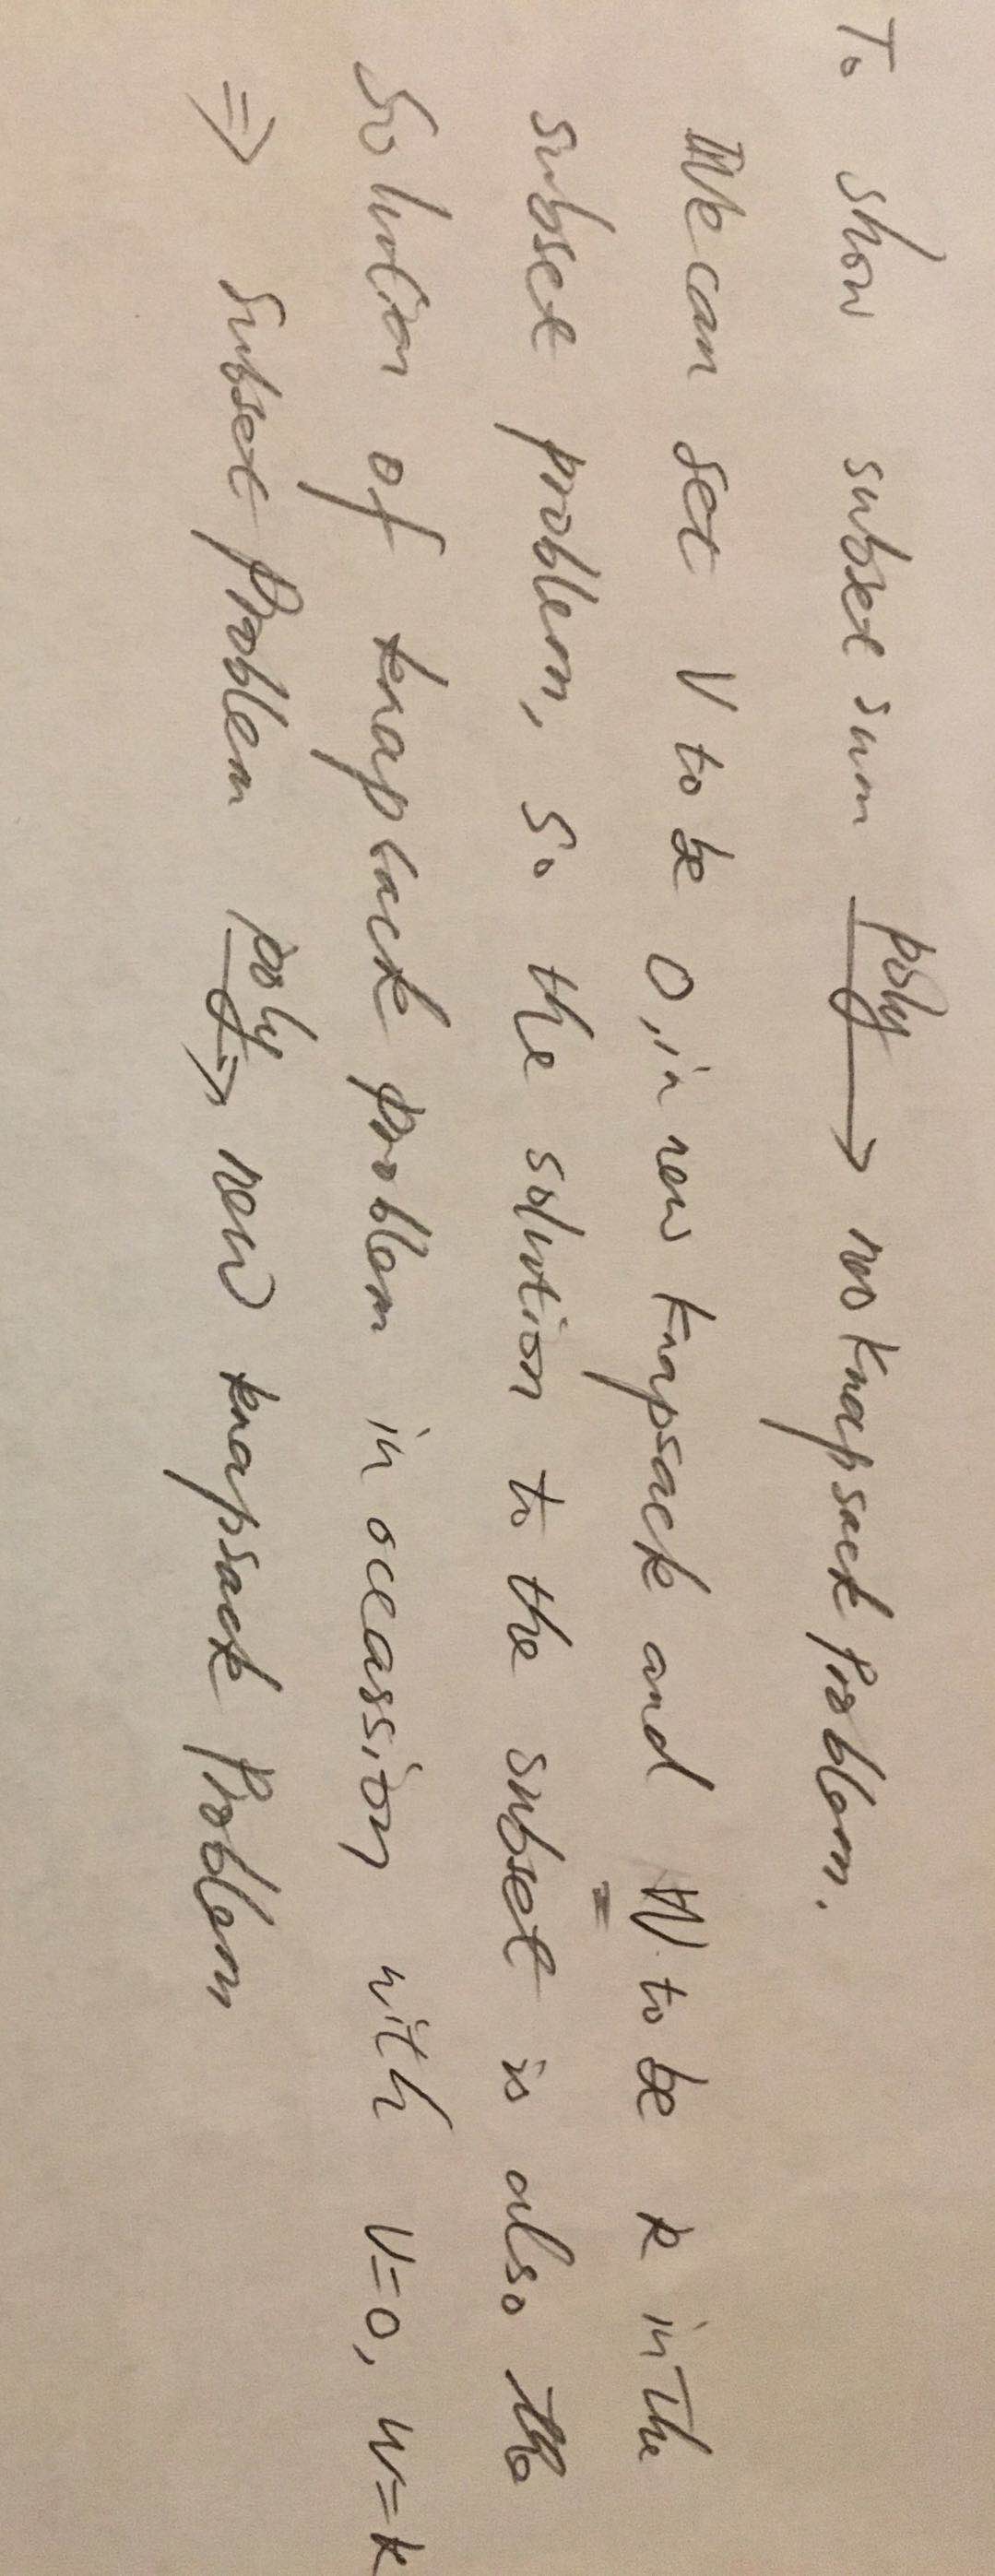 To show subset sum poly → new knapsack problem.
We can set V to be 0, in new knapsack and W to be k in the
subset problem, so the solution to the subset is also the
solution of knapsack problem in ocassion with V=0, W=k
⇒ subset problem poly → new knapsack problem